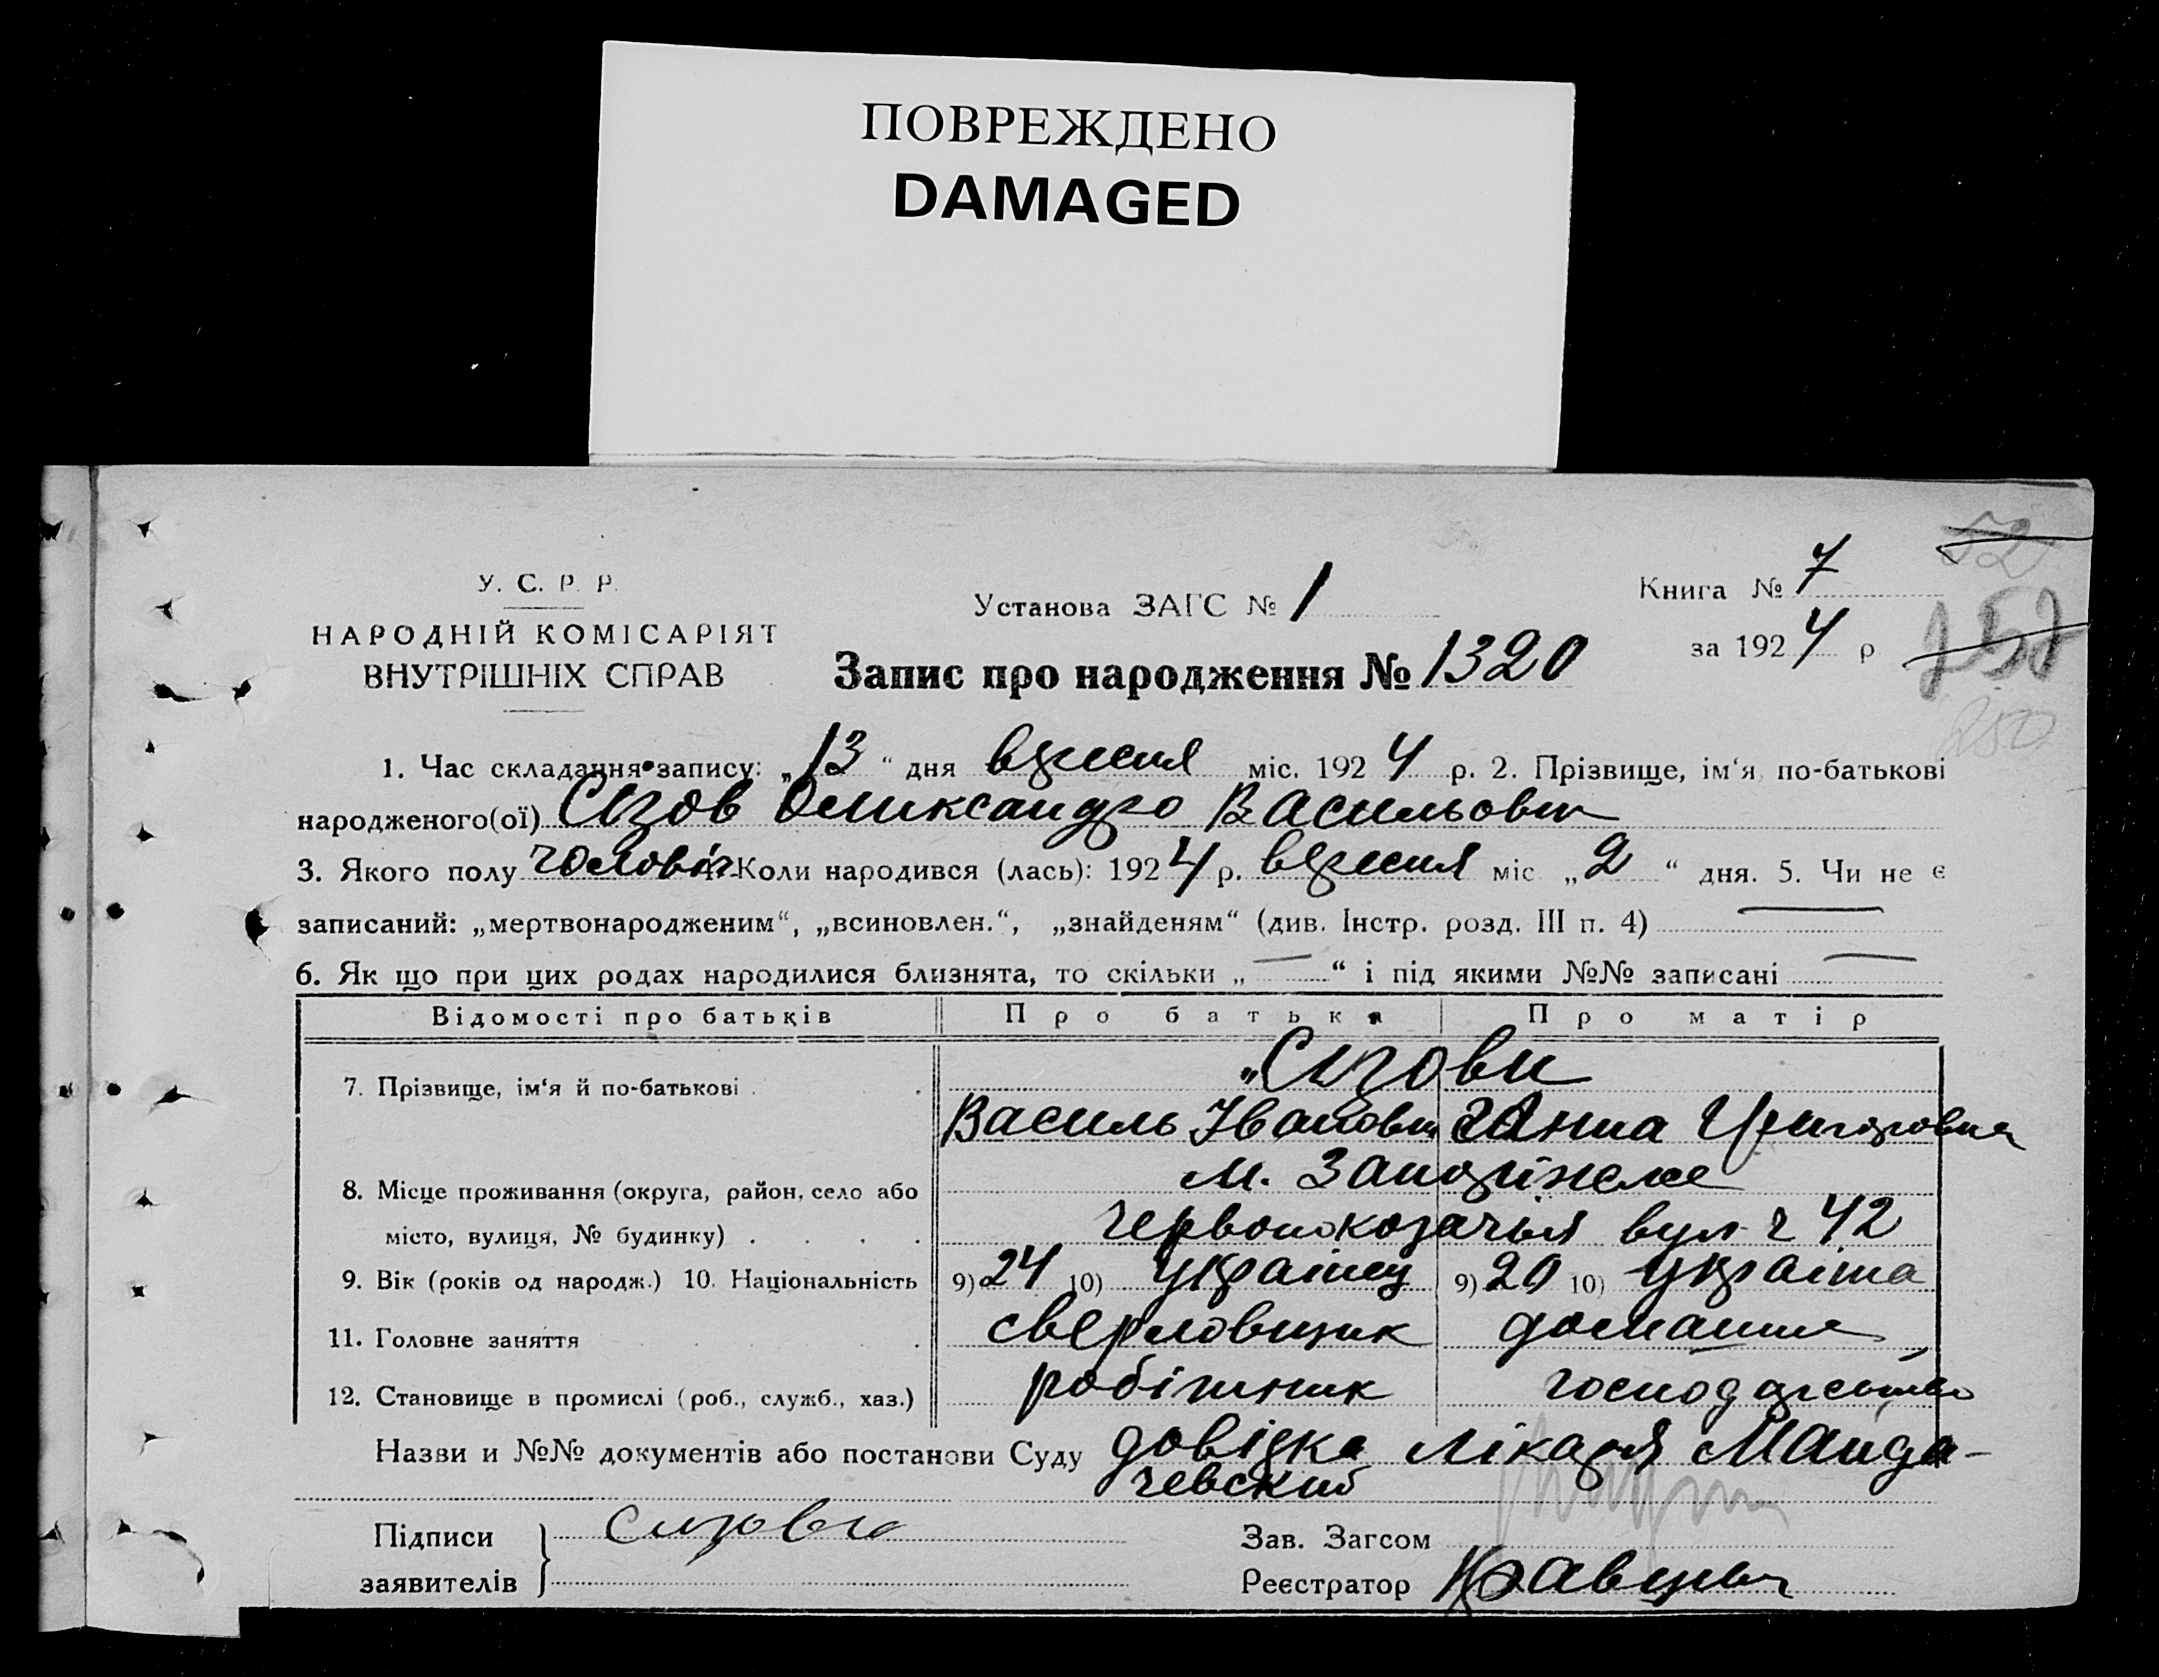 ПОВРЕЖДЕНО
DAMAGED
У. С. Р. Р.
НАРОДНІЙ КОМІСАРІЯТ
ВНУТРІШНІХ СПРАВ
Установа ЗАГС № 1
Книга № 7
за 1924 р
52
257
250
Запис про народження № 1320
1. Час складання запису: „13“ дня вересня міс. 1924 р. 2. Прізвище, ім‘я, по-батькові
народженого(ої) Сізов Олександро Васильович
3. Якого полу чоловіч. Коли народився (лась): 1924 р. вересня міс „2“ дня. 5. Чи не є
записаний: „мертвонародженим“, „всиновлен.“, „знайденям“ (див. Інстр. розд. III п. 4) —
6. Як що при цих родах народилися близнята, то скільки „—“ і під якими №№ записані —
Відомості про батьків Про батька Про матір
7. Прізвище, ім‘я й по-батькові . . Сізови
Василь Іванович Ганна Григоровна
8. Місце проживання (округа, район, село або м. Запоріжжє
місто, вулиця, № будинку) . . . . Червонокозачья вул ч 42
9. Вік (років од народж.) 10. Національність 9) 24 10) Українец 9) 20 10) Україна
11. Головне заняття . сверловщик домашнє
12. Становище в промислі (роб., служб., хаз.) робітник господарство
Назви и №№ документів або постанови Суду довідка лікаря Манда-
чевский
Підписи
заявителів
Сизова
Зав. Загсом
Реєстратор Кравцов